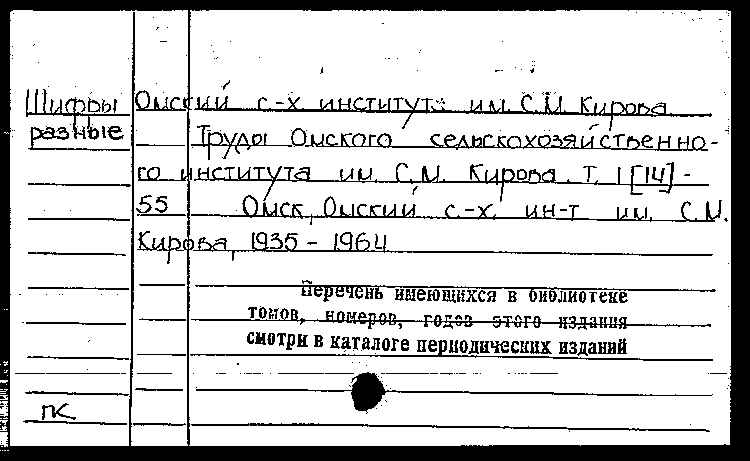 Шифры Омский с.-х институт им. С.М. Кирова
разные Труды Омского сельскохозяйственно-
го института им. С.М. Кирова. Т. 1 [14] -
55 Омск, Омский с.-х. ин-т им. С.М.
Кирова, 1935 - 1964
Перечень имеющихся в библиотеке
томов, номеров, годов этого издания
смотри в каталоге периодических изданий
ПК